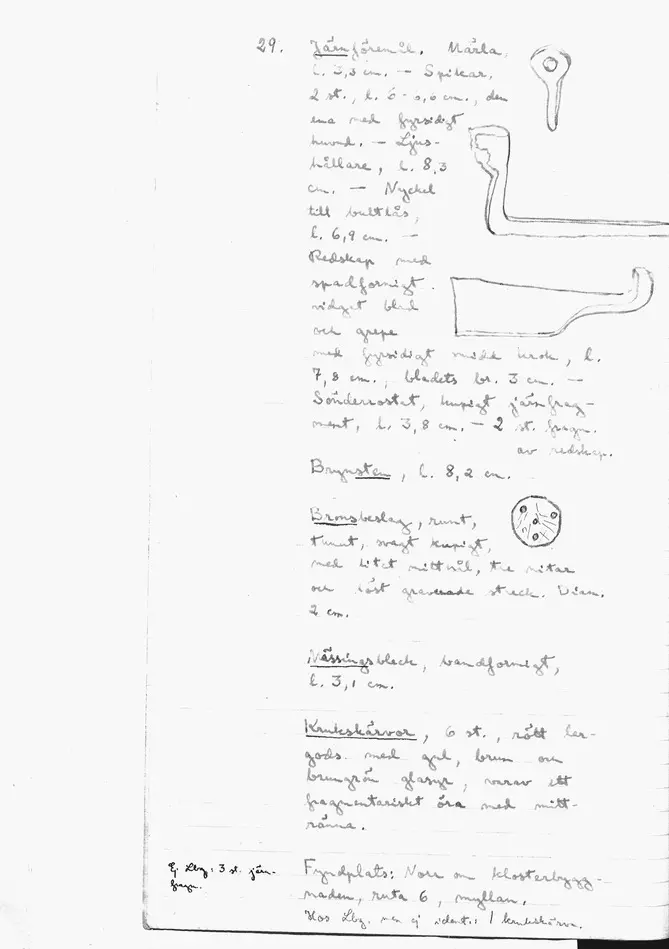 29. Järnföremål. Märla,
l. 3,3 cm. — Spikar,
2 st., l. 6 - 5,6 cm., den
ena med fyrsidigt
huvud. — Ljus-
hållare, l. 8,3
cm. — Nyckel
till bultlås,
l. 6,9 cm. —
Redskap med
spadformigt
vidget blad
och grepe
med fyrsidigt smidd krok, l.
7,8 cm., bladets br. 3 cm. —
Sönderrostat, kupigt järnfrag-
ment, l. 3,8 cm. — 2 st. fragm.
av redskap.
Brynsten, l. 8,2 cm.
Bronsbeslag, runt,
tunnt, svagt kupigt,
med litet mitthål, tre nitar
och löst graverade streck. Diam.
2 cm.
Mässingsbleck, bandformigt,
l. 3,1 cm.
Krukskärvor, 6 st., rött ler-
gods med gul, brun och
brungrön glasyr, varav ett
fragmentariskt öra med mitt-
ränna.
Ej Lbg: 3 st. järn-
fragm.
Fyndplats: Norr om klosterbygg-
naden, ruta 6, myllan.
Hos Lbg. men ej ident.: 1 krukskärva.